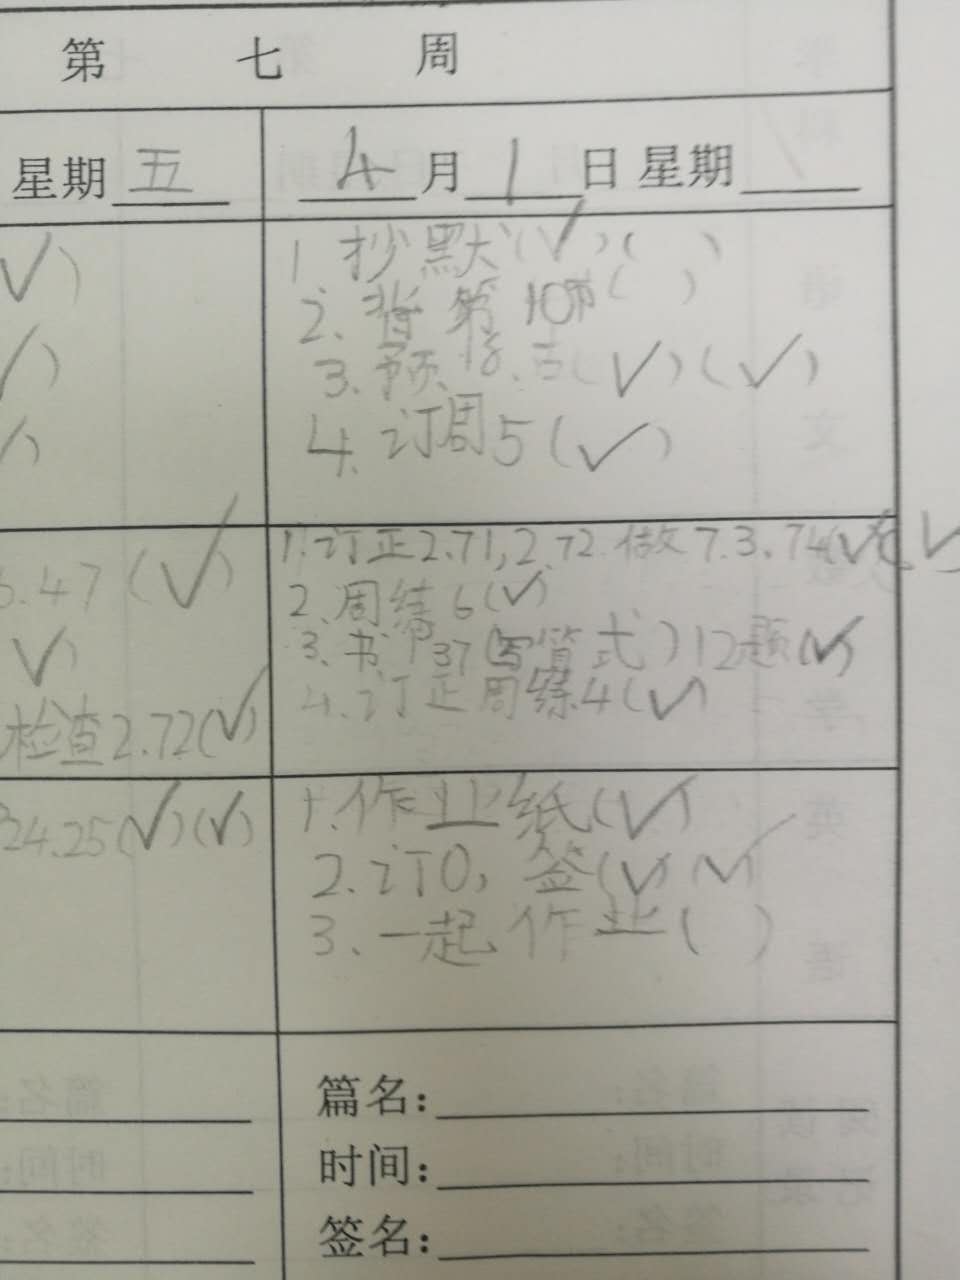 第 七 周
星期 五
4 月 1 日 星期
√)
√)
√)
1. 抄默(√)( )
2. 背第10课( )
3. 预 (√)(√)
4. 订周5(√)
3.47(√)
√)
检查2.72(√)
1. 订正2.71,2.72.做7.3.74(√)(√)
2. 周练6(√)
3. 书P37(写算式)12题(√)
4. 订正周练4(√)
24.25(√)(√)
1. 作业纸(√)
2. 订0,签(√)(√)
3. 一起作业( )
篇名:
时间:
签名: